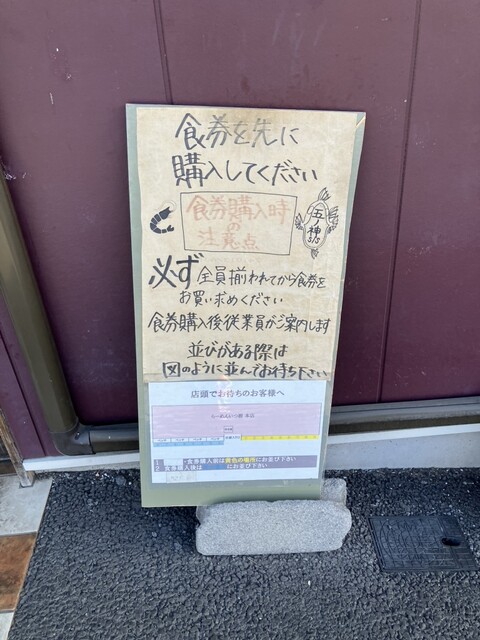 食券を先に
購入してください
食券購入時
の
注意点
五ノ神
必ず 全員揃われてから食券を
お買い求めください
食券購入後従業員がご案内します
並びがある際は
図のように並んでお待ち下さい
店頭でお待ちのお客様へ
食券購入前は黄色の場所にお並び下さい
食券購入後は
にお並び下さい